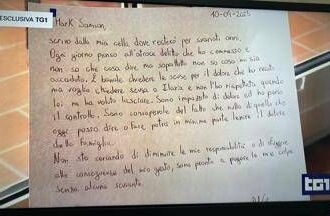 ESCLUSIVA TG1
10-04-2025
Mark Samson,
scrivo dalla mia cella, dove resterò per svariati anni.
Ogni giorno penso all'atroce delitto che ho commesso e
non so che cosa dire ma soprattutto non so cosa mi sia
accaduto. È banale chiedere le scuse per il dolore che ho causato
ma voglio chiedere scusa a Ilaria e non l'ho rispettata quando
lei mi ha voluto lasciare. Sono impazzito di dolore ed ho perso
il controllo. Sono consapevole del fatto che nulla di quello che
oggi posso dire o fare, potrà in minima parte lenire il dolore
della famiglia.
Non sto cercando di diminuire le mie responsabilità o di sfuggire
alle conseguenze del mio gesto, sono pronto a pagare le mie colpe
senza alcuno sconto.
TG1